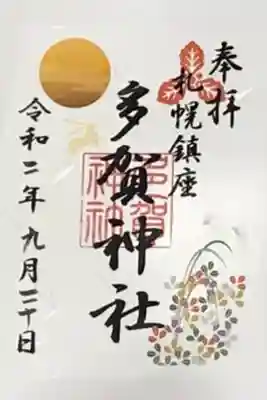 奉拝
札幌鎮座
多賀神社
令和二年九月二十日